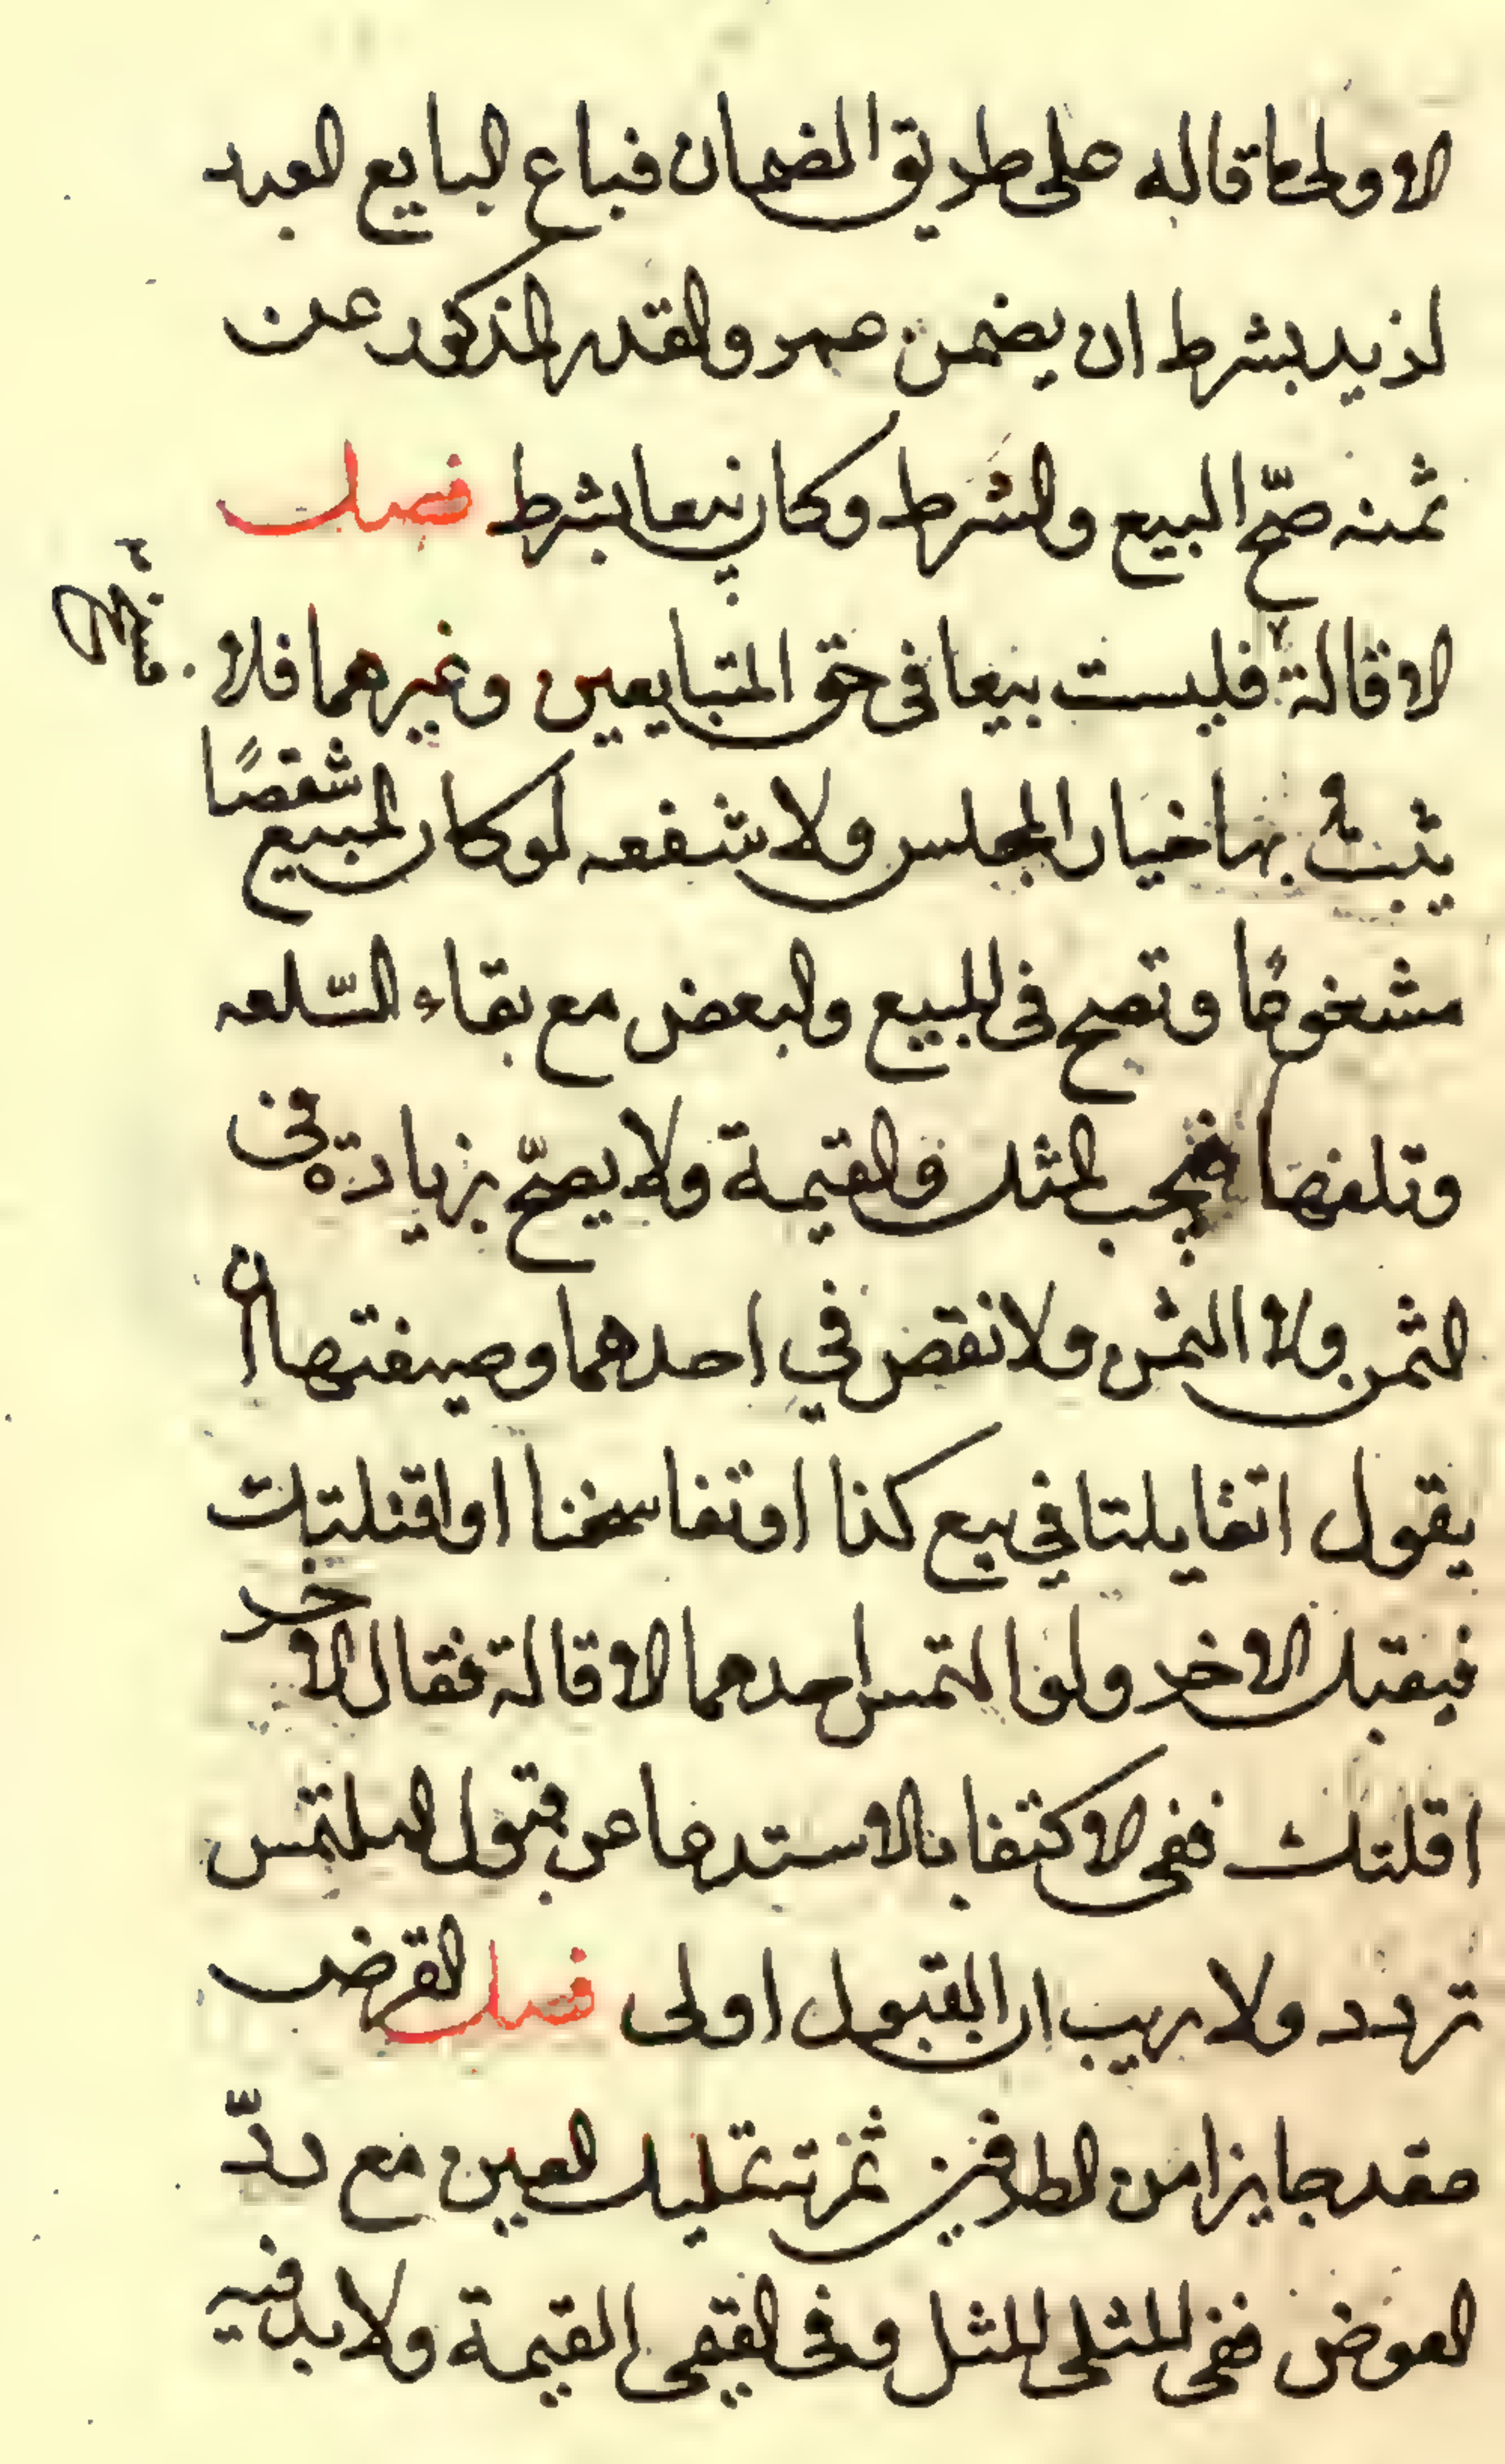 الاولى ما قاله على طريق الضمان فباع البايع العبد
لزيد بشرط ان يضمن عمرو القدر المذكور عن
ثمنه صحّ البيع والشرط وكان بيعا بشرط فصل
الاقالة فليست بيعا فى حق المتبايعين وغيرهما فلا
يثبت بها خيار المجلس ولا شفعه لو كان المبيع شقصًا
مشفوعًا وتصح فى المبيع والبعض مع بقاء السّلعه
وتلفها فيجب المثل والقيمة ولا يصحّ بزيادة فى
الثمن ولا المثمن ولا نقص في احدهما وصيغتها ان
يقول اتقايلتا في بيع كذا او تفاسخنا او اقلتك
فيقبل الاخر ولو التمس احدهما الاقالة فقال الاخر
اقلتك ففى الاكتفا بالاستدعا عن قبول الملتمس
تردد ولا ريب ان القبول اولى فصل القرض
عقد جايزا من الطرفين ثمرته تمليك العين مع ردّ
العوض ففى المثلى المثل وفى القيمى القيمة ولا بد فيه